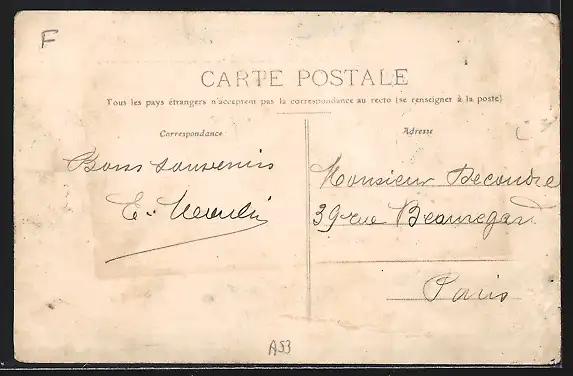 F
CARTE POSTALE
Tous les pays étrangers n'acceptent pas la correspondance au recto (se renseigner à la poste)
Correspondance
Adresse
Bons souvenirs
E. Moulin
Monsieur Decondre
39 rue Beauregard
Paris
A53